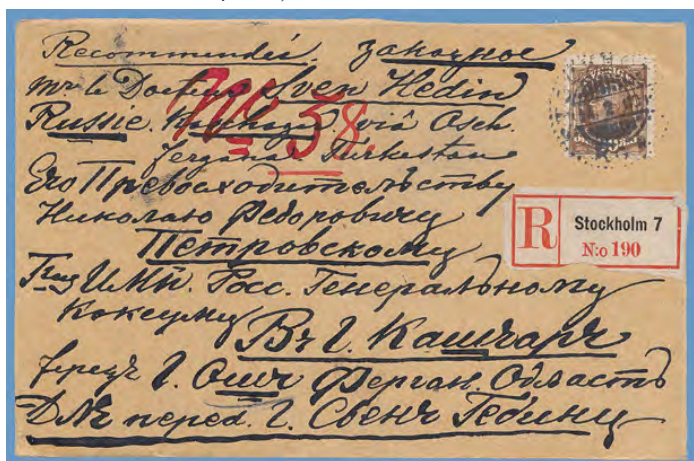 Recommandée. Заказное
Mr le Docteur Sven Hedin
Russie. Kashgar. viâ Osch.
Fergana Turkestan
№ 58
Его Превосходительству
Николаю Федоровичу
Петровскому
Гну Имп. Росс. Генеральному
Консулу
Въ г. Кашгаръ
черезъ г. Ошъ Ферган. Область
Для перед. г. Свенъ Гедину
R
Stockholm 7
N:o 190